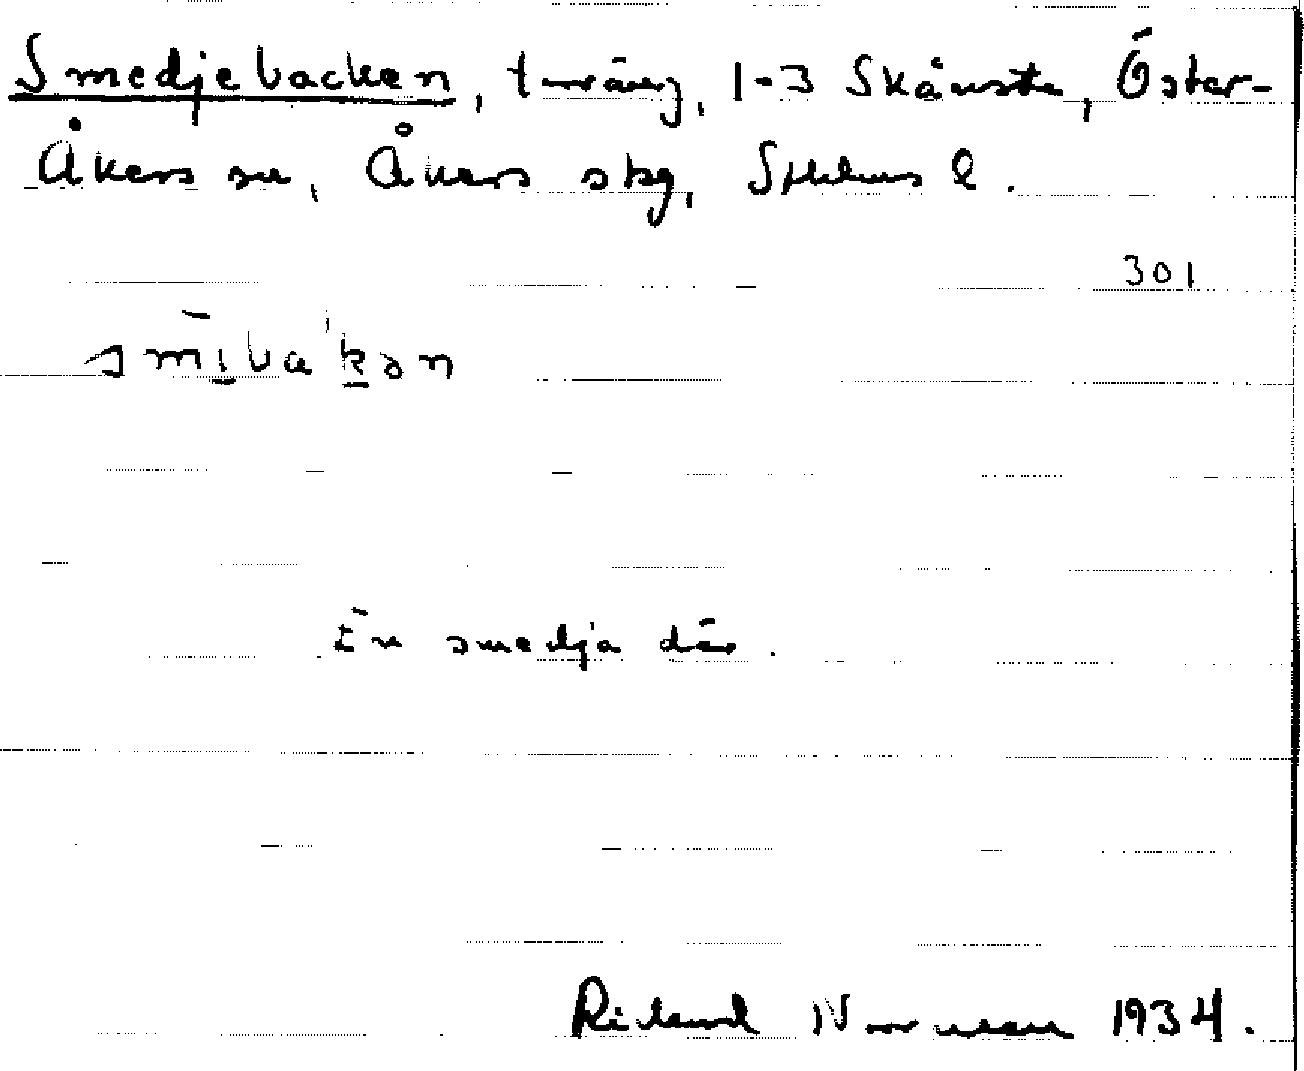 Smedjebacken, terräng, 1-3 Skånsta, Öster-
Åkers sn, Åkers skg, Sthlms l.
301
smi̱ba`ḵən
En smedja där.
Rickard Norrman 1934.